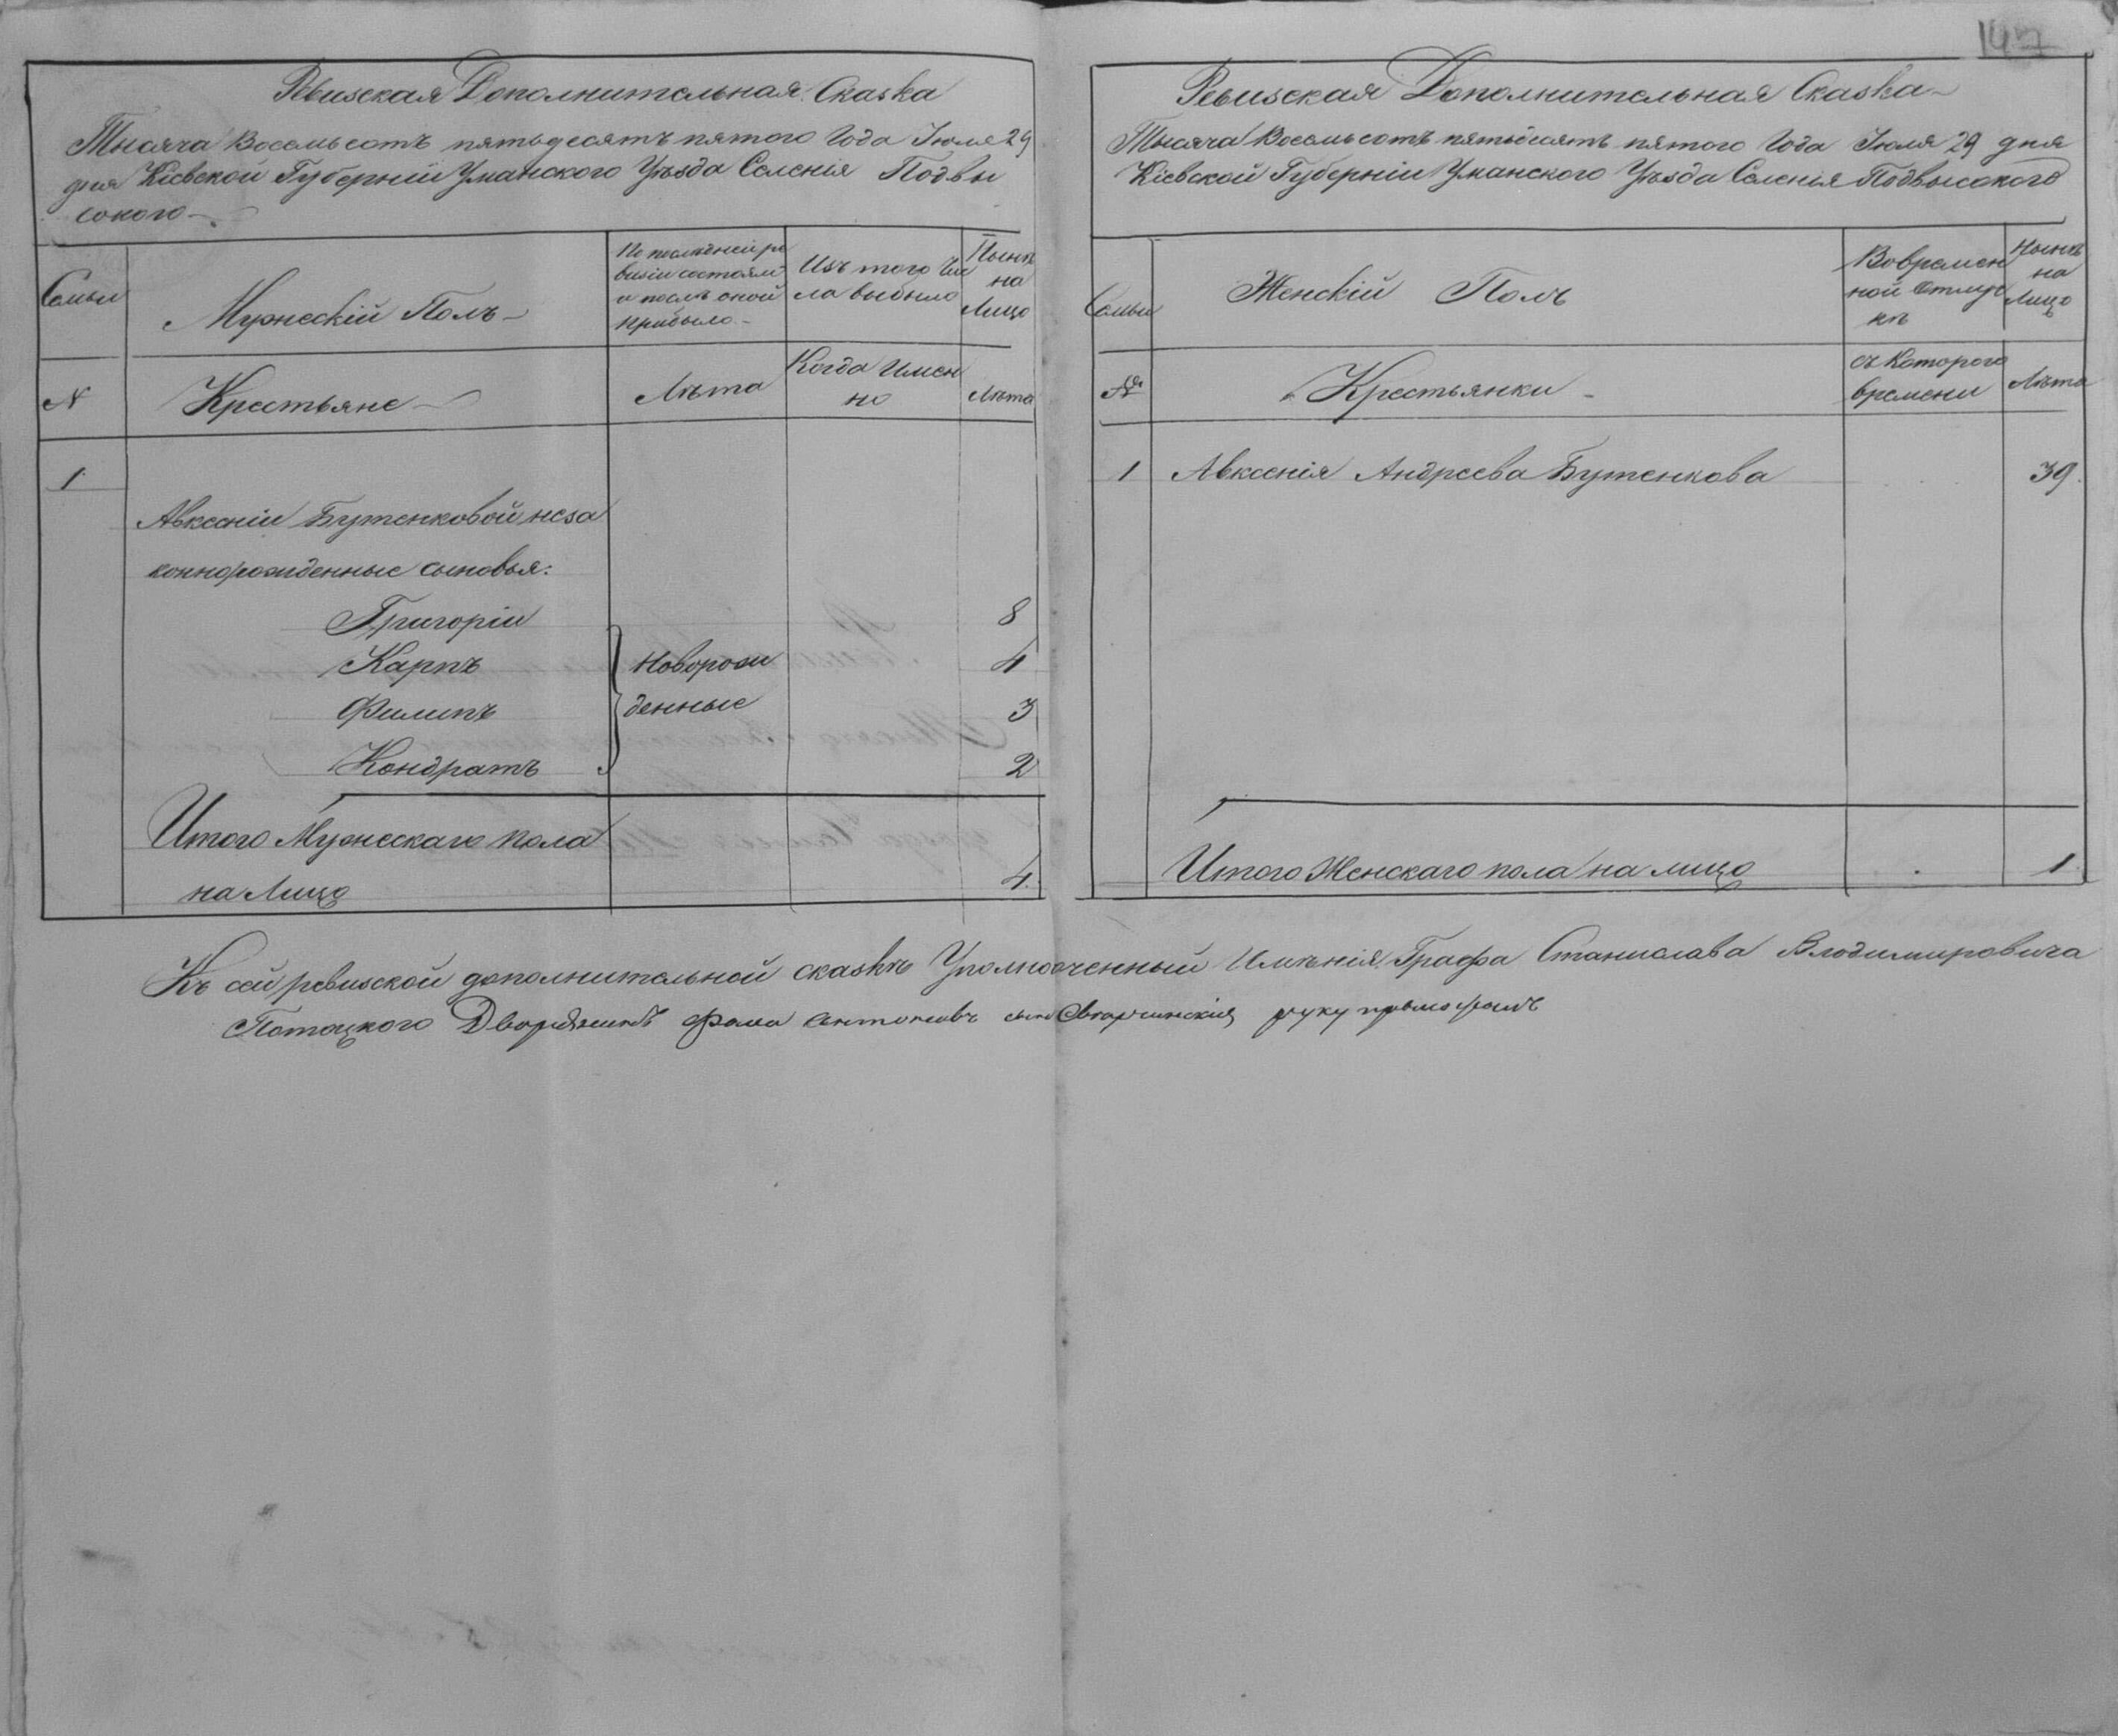 147
Ревизская Дополнительная Сказка
Тысяча Восемьсотъ пятьдесятъ пятого Года Іюля 29
дня Кіевской Губерніи Уманского Уѣзда Селенія Подвы
сокого
Семьи
Мужескій Полъ
По последней ре
визіи состояло
и послѣ оной
прибыло
Изъ того Чис
ла выбыло
Нынѣ
на
Лицо
N
Крестьяне
Лѣта
Когда Имен
но
Лѣта
1
Авксеніи Бутенковой неза
коннорожденные сыновья:
Григорій 8
Карпъ Новорож 4
Филипъ денные 3
Кондратъ 2
Итого Мужескаго пола
на Лицо 4.
Ревизская Дополнительная Сказка
Тысяча Восемьсотъ пятьдесятъ пятого Года Іюля 29 дня
Кіевской Губерніи Уманского Уѣзда Селенія Подвысокого
Семьи
Женскій Полъ
Во времен
ной Отлуч
кѣ
Нынѣ
на
Лицо
№
Крестьянки
съ Которого
времени
Лѣта
1 Авксенія Андреева Бутенкова 39.
Итого Женскаго пола на лицо 1.
Къ сей ревизской дополнительной сказкѣ Уполномоченный Имѣнія Графа Станислава Влодимировича
Потоцкого Дворянинъ Фома Антоновъ сынъ руку приложилъ